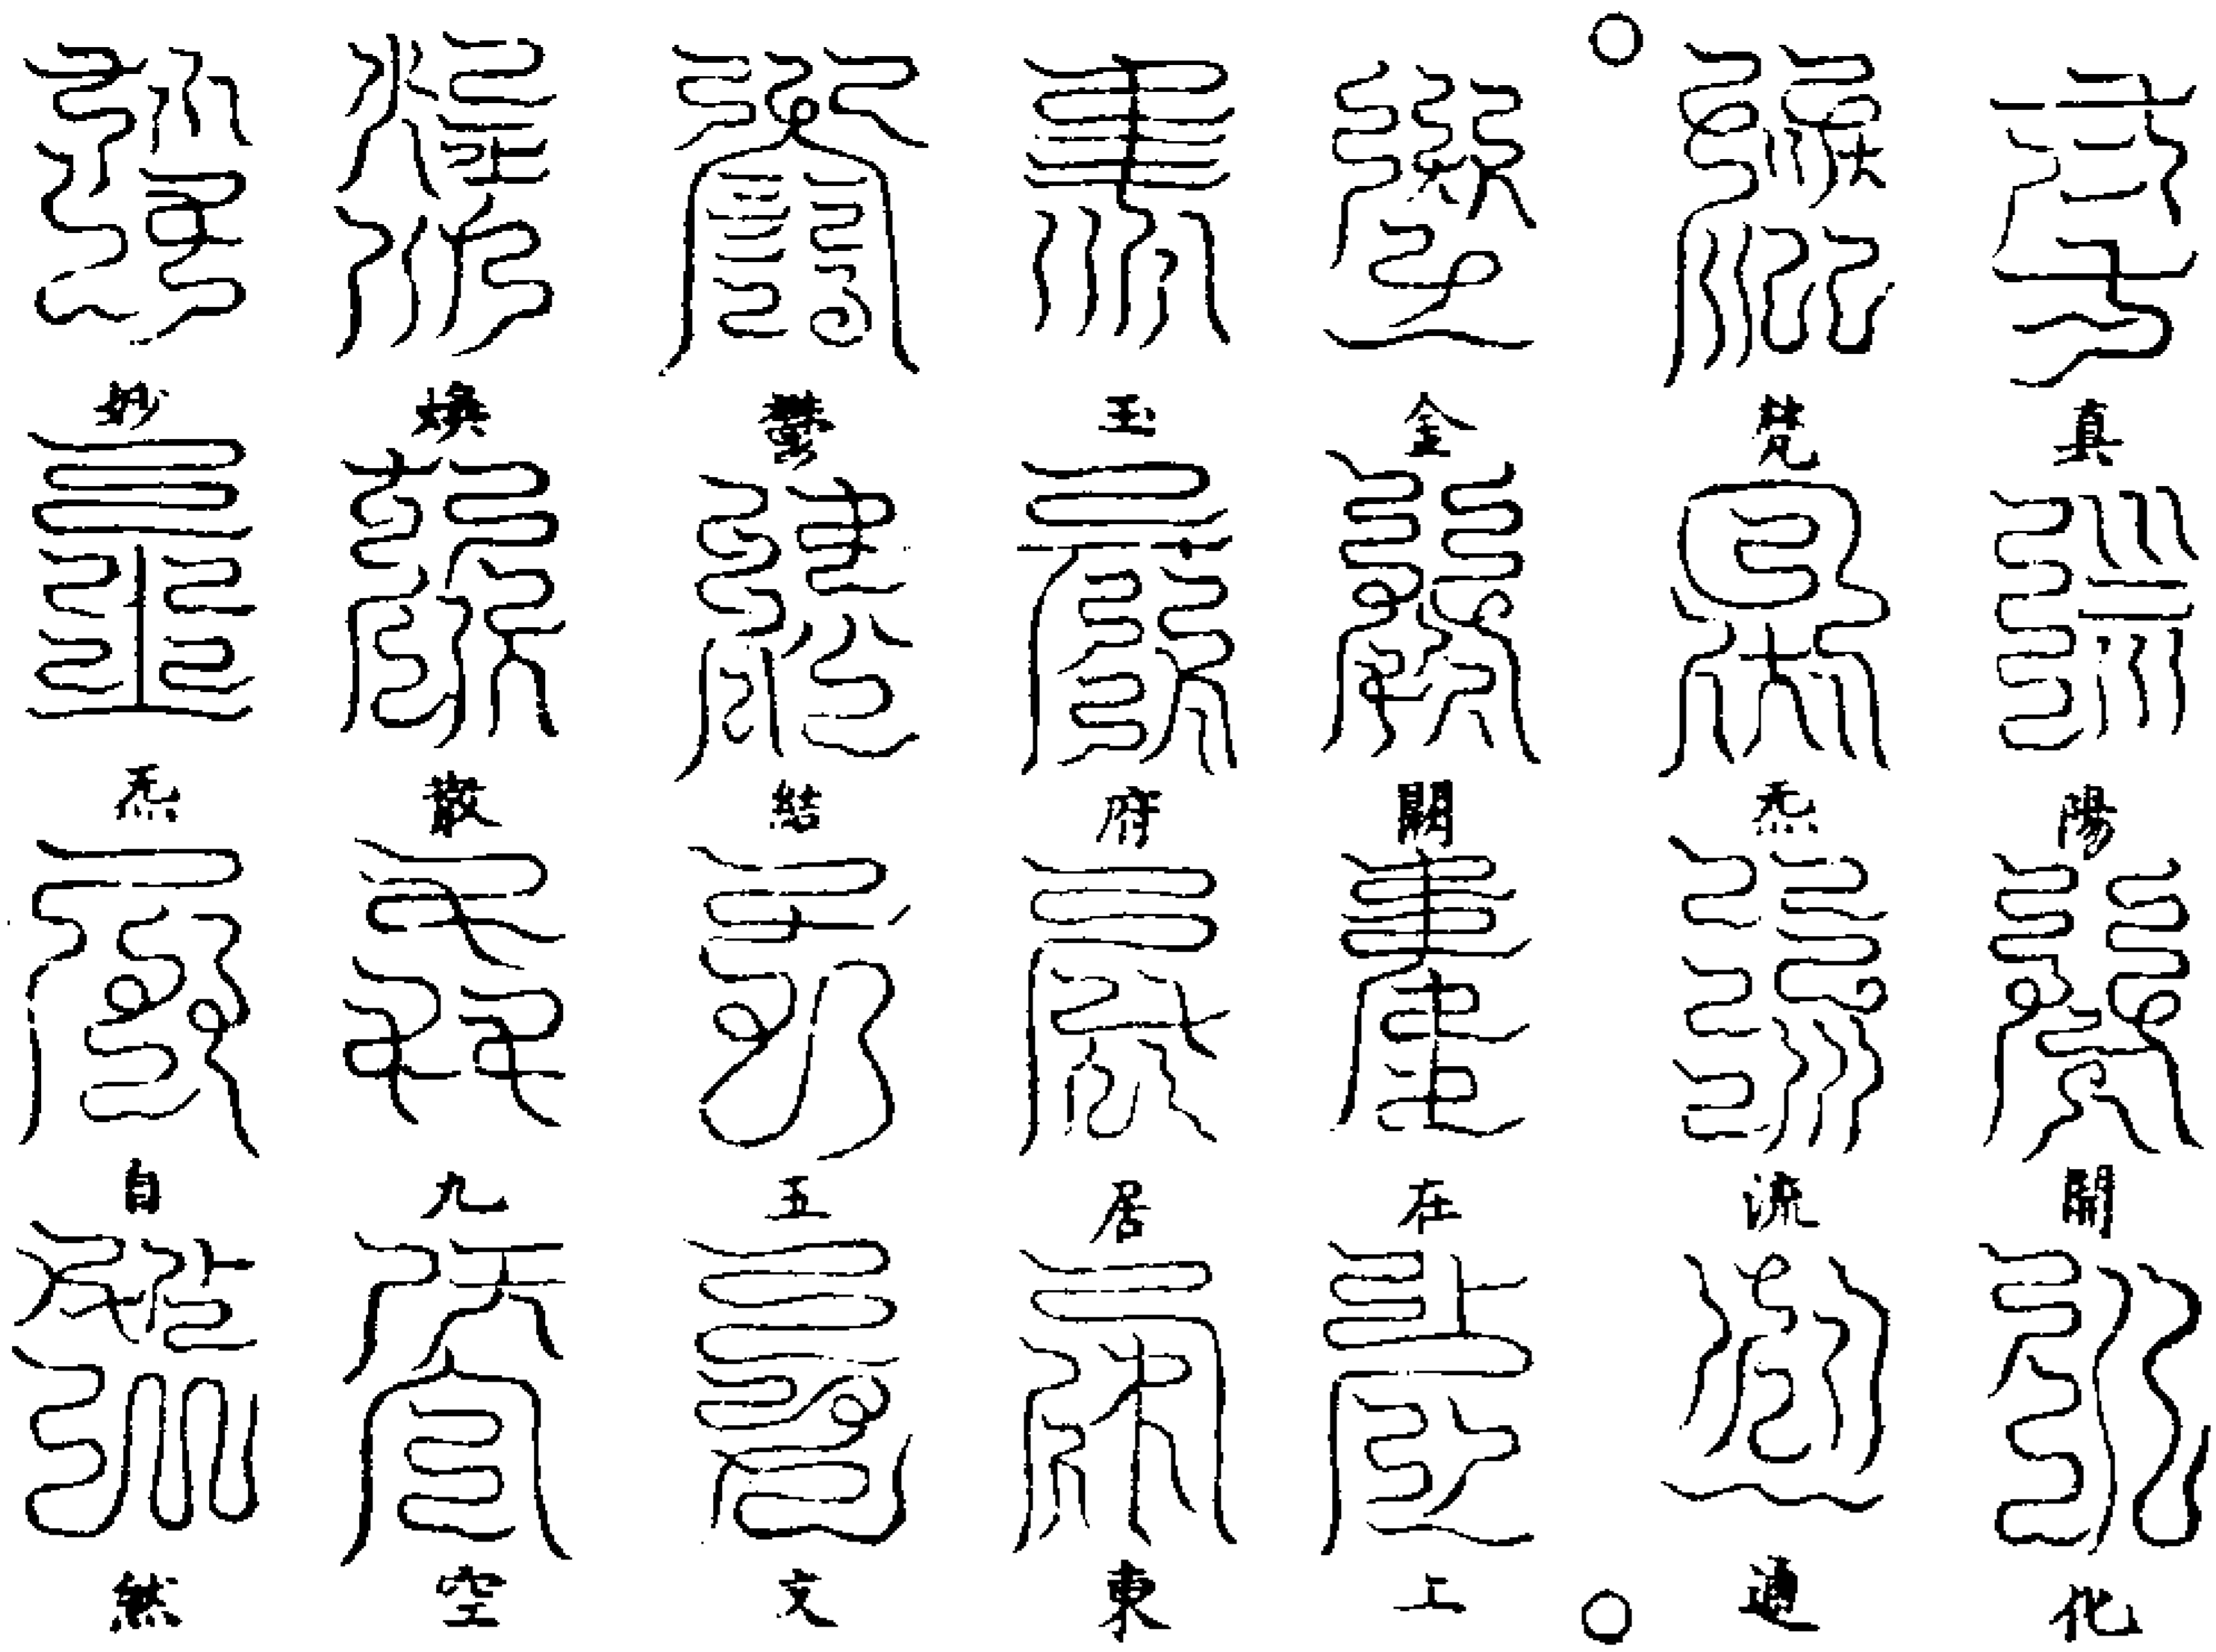 真陽開化
梵炁流通
金闕在上
玉府居東
鬱結五文
煥散九空
妙炁自然